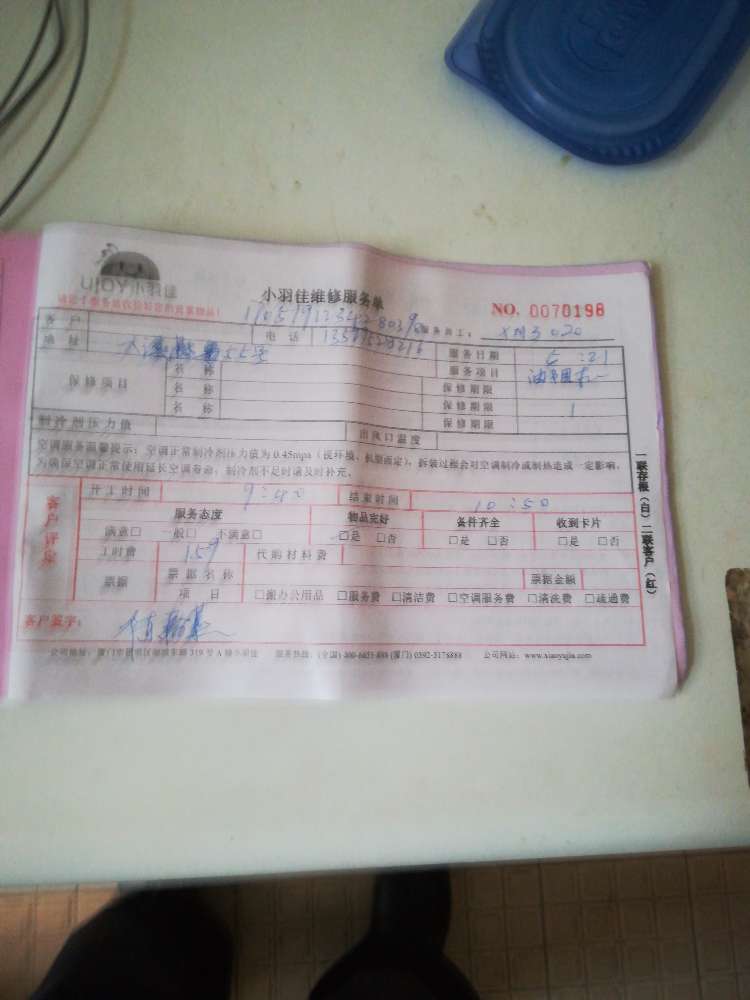 UJOY小羽佳
小羽佳维修服务单
NO. 0070198
客户
服务员工: XM3020
地址
55号
电话
服务日期 5:21
服务项目
保修项目
名称
保修期限
名称
保修期限 1
名称
保修期限
制冷剂压力值
出风口温度
空调服务温馨提示:空调正常制冷剂压力值为0.45mpa(视环境、机型而定),拆装过程会对空调制冷或制热造成一定影响,
为确保空调正常使用延长空调寿命,制冷剂不足时请及时补充。
一联存根(白)二联客户(红)
客户评定
开工时间 9:40
结束时间 10:50
服务态度
物品完好
备件齐全
收到卡片
满意□ 一般□ 不满意□
□是 □否
□是 □否
□是 □否
工时费 159
代购材料费
票据
票据名称
票据金额
项目
□搬办公用品 □服务费 □清洁费 □空调服务费 □清洗费 □疏通费
客户签字:
公司网站:www.xiaoyujia.com